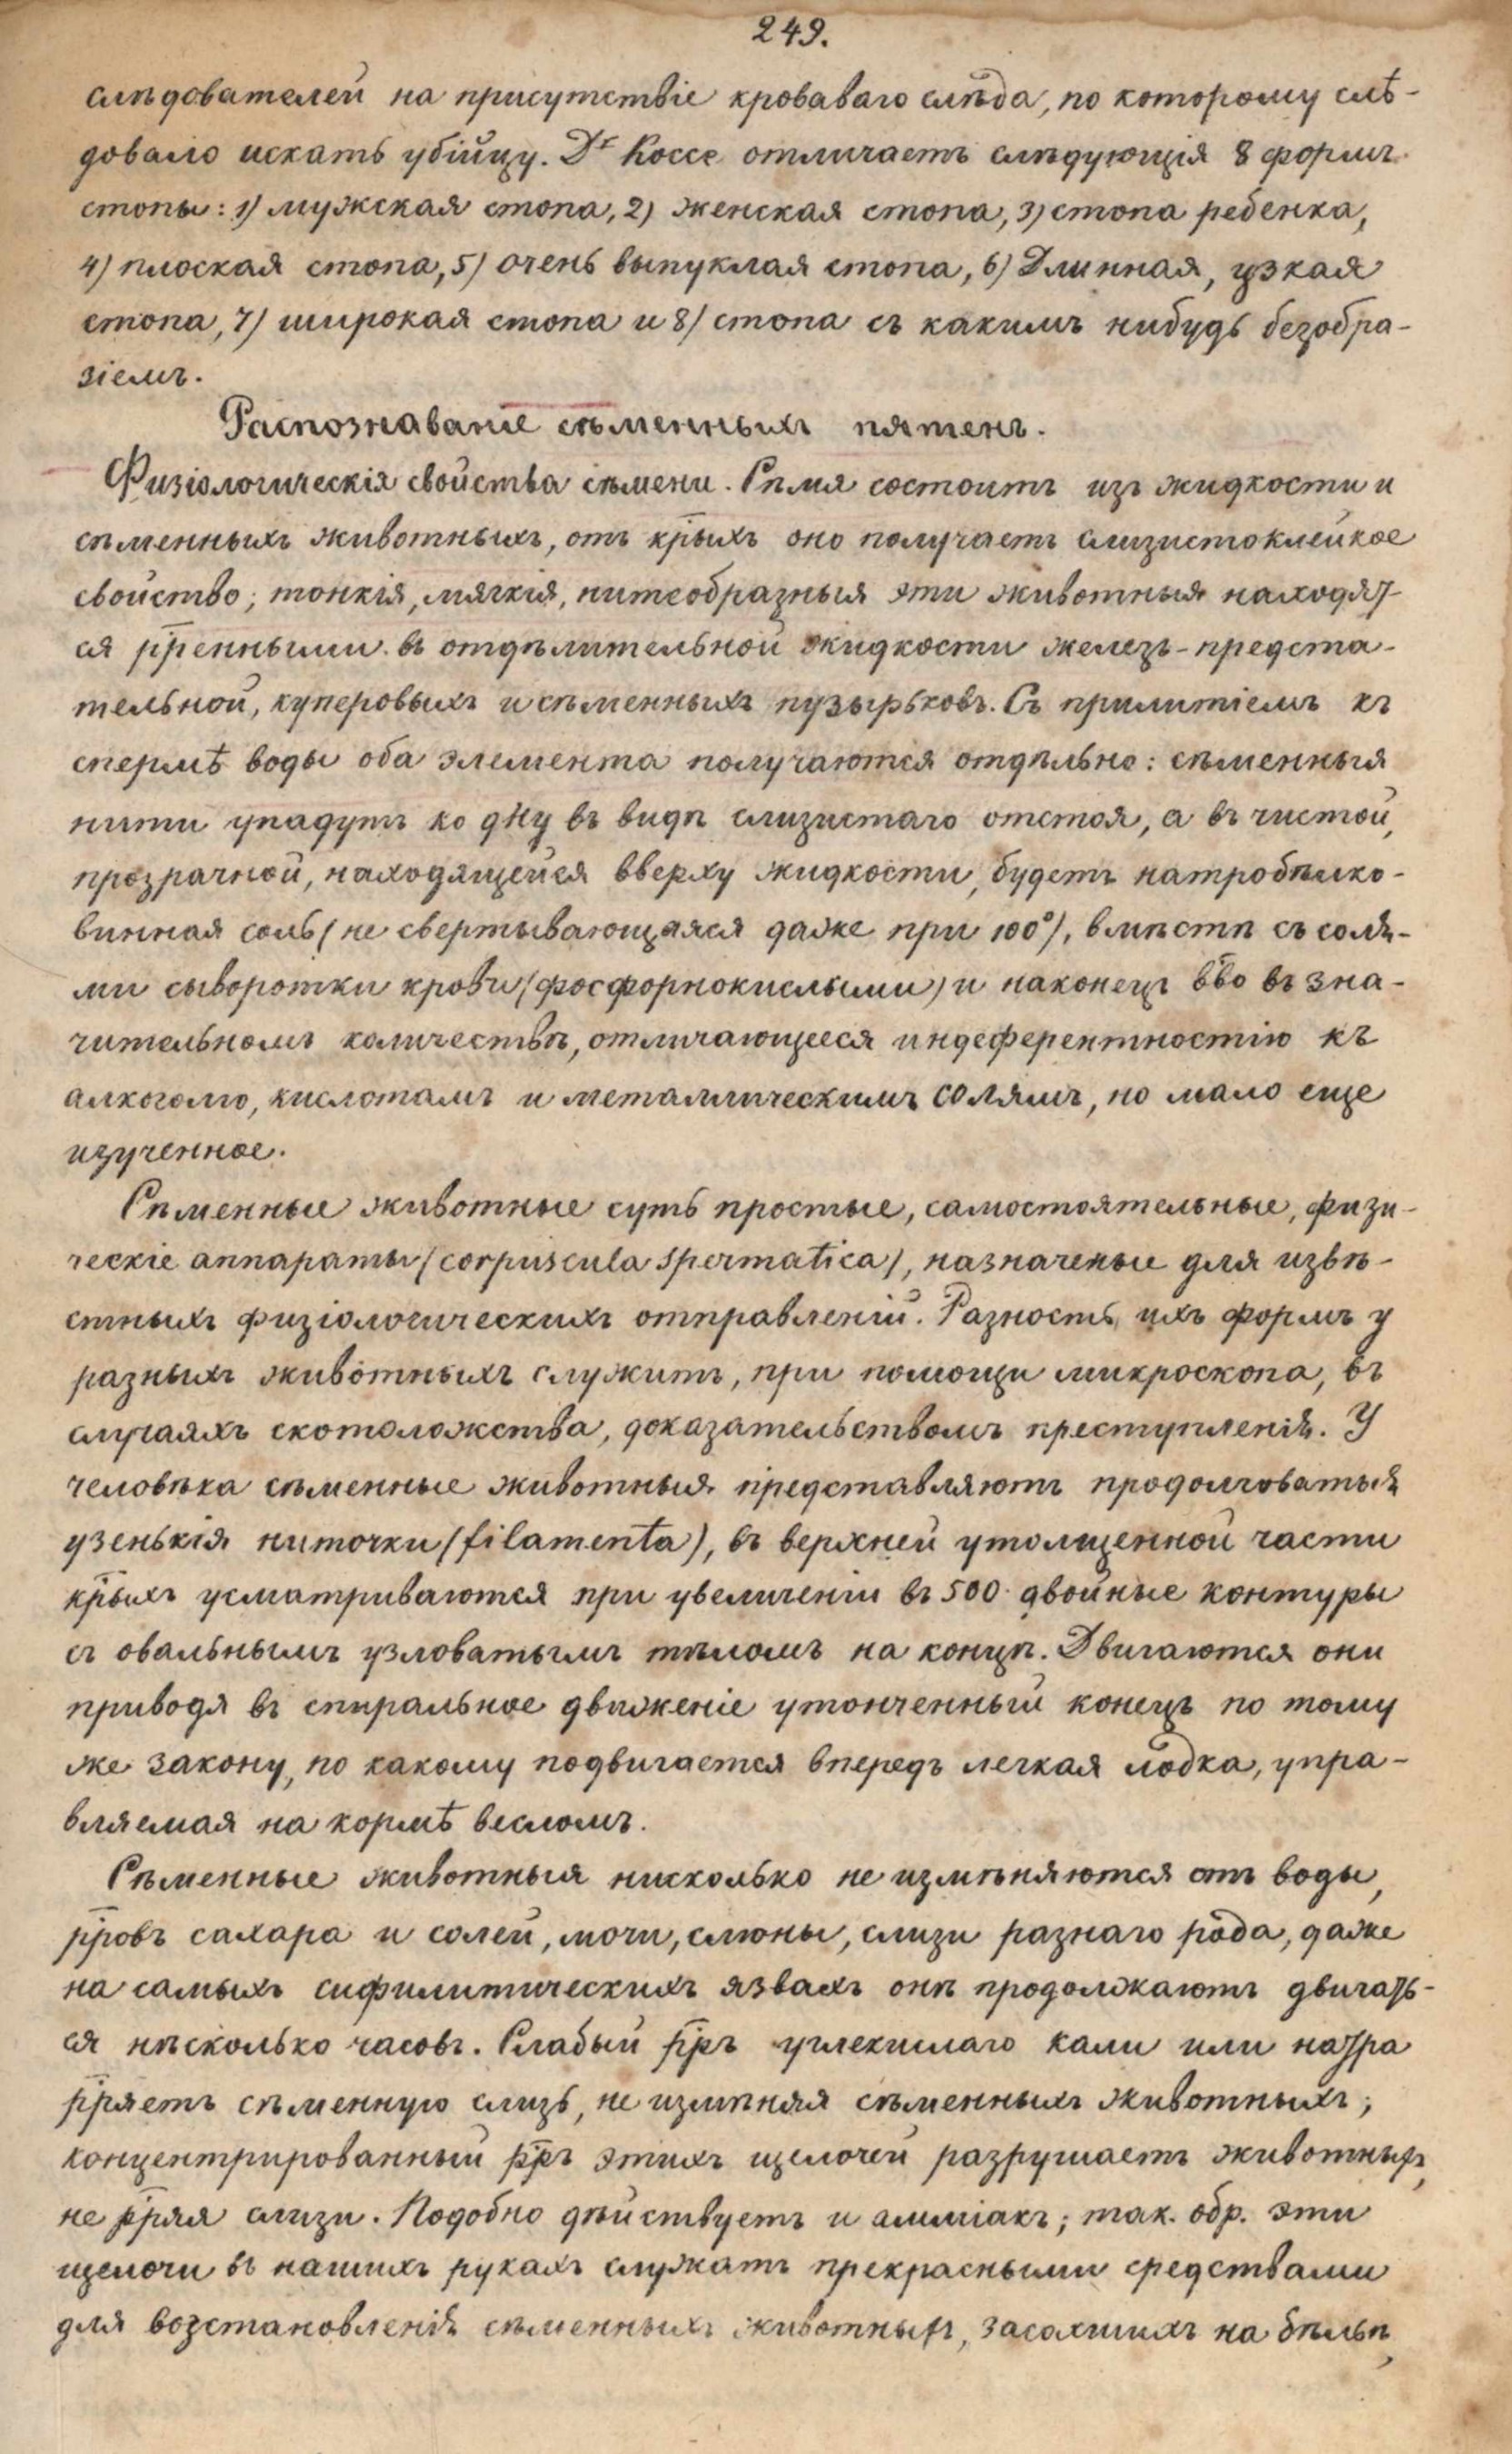 249.
слѣдователей на присутствіе кроваваго слѣда, по которому слѣ-
довало искать убійцу. Dr Коссе отличаетъ слѣдующія 8 формъ
стопы: 1) мужская стопа, 2) женская стопа, 3) стопа ребенка,
4) плоская стопа, 5) очень выпуклая стопа, 6) Длинная, узкая
стопа, 7) широкая стопа и 8) стопа съ какимъ нибудь безобра-
зіемъ.
Распознаваніе сѣменныхъ пятенъ.
Физіологическія свойства сѣмени. Сѣмя состоитъ изъ жидкости и
сѣменныхъ животныхъ, отъ крыхъ оно получаетъ слизистоклейкое
свойство; тонкія, мягкія, нитеобразныя эти животныя находят-
ся рренными въ отдѣлительной жидкости железъ - предста-
тельной, куперовыхъ и сѣменныхъ пузырьковъ. Съ прилитіемъ къ
спермѣ воды оба элемента получаются отдѣльно: сѣменныя
нити упадутъ ко дну въ видѣ слизистаго отстоя, а въ чистой,
прозрачной, находящейся вверху жидкости, будетъ натробѣлко-
винная соль (не свертывающаяся даже при 100°), вмѣстѣ съ соля-
ми сыворотки крови (фосфорнокислыми) и наконецъ вво въ зна-
чительномъ количествѣ, отличающееся индеферентностію къ
алкоголю, кислотамъ и металлическимъ солямъ, но мало еще
изученное.
Сѣменные животные суть простые, самостоятельные, физи-
ческіе аппараты (corpuscula spermatica), назначеные для извѣ-
стныхъ физіологическихъ отправленій. Разность ихъ формъ у
разныхъ животныхъ служитъ, при помощи микроскопа, въ
случаяхъ скотоложства, доказательствомъ преступленія. У
человѣка сѣменные животныя представляютъ продолговатыя
узенькія ниточки (filamenta), въ верхней утолщенной части
крыхъ усматриваются при увеличеніи въ 500 двойные контуры
съ овальнымъ узловатымъ тѣломъ на концѣ. Двигаются они
приводя въ спиральное движеніе утонченный конецъ по тому
же закону, по какому подвигается впередъ легкая лодка, упра-
вляемая на кормѣ весломъ.
Сѣменные животныя нисколько не измѣняются отъ воды,
рровъ сахара и солей, мочи, слюны, слизи разнаго рода, даже
на самыхъ сифилитическихъ язвахъ онѣ продолжаютъ двигать-
ся нѣсколько часовъ. Слабый рръ углекислаго кали или натра
рряетъ сѣменную слизь, не измѣняя сѣменныхъ животныхъ;
концентрированный рръ этихъ щелочей разрушаетъ животныхъ,
не рряя слизи. Подобно дѣйствуетъ и амміакъ; так. обр. эти
щелочи въ нашихъ рукахъ служатъ прекрасными средствами
для возстановленія сѣменныхъ животныхъ, засохшихъ на бѣльѣ,